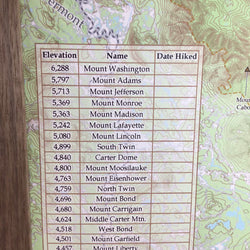 ermont
Elevation Name Date Hiked
6,288 Mount Washington
5,797 Mount Adams
5,713 Mount Jefferson
5,369 Mount Monroe
5,363 Mount Madison
5,242 Mount Lafayette
5,080 Mount Lincoln
4,899 South Twin
4,840 Carter Dome
4,800 Mount Moosilauke
4,763 Mount Eisenhower
4,759 North Twin
4,696 Mount Bond
4,680 Mount Carrigain
4,624 Middle Carter Mtn.
4,518 West Bond
4,501 Mount Garfield
4,457 Mount Liberty
Mount
Cabo